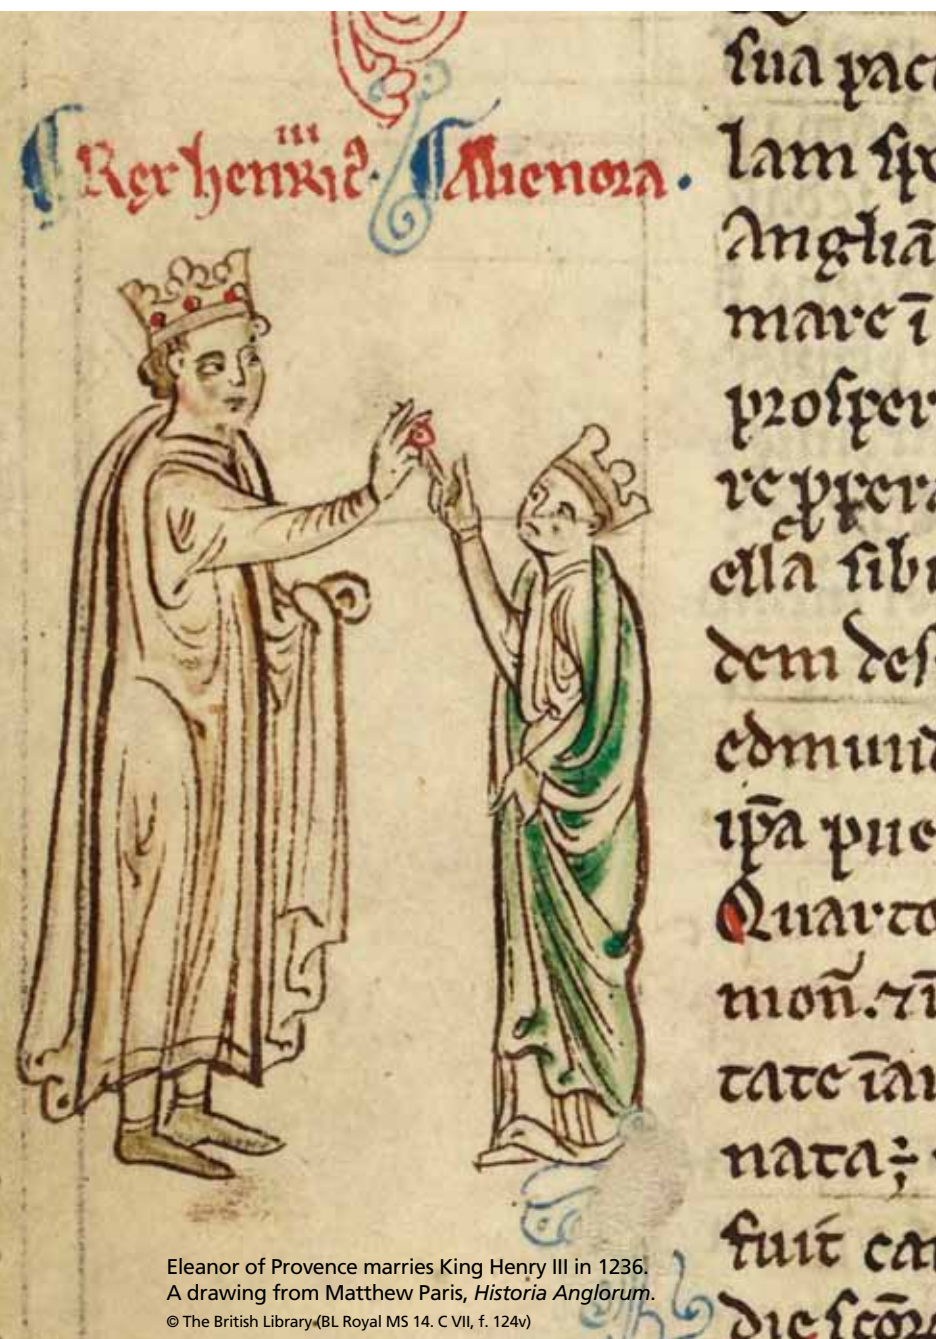 iii
¶ Rex henricꝰ. ¶ Alienora.
sua pac
lam
Angliā
mare ī
prosper
re
ella sibi
dem des
edmun
ip̄a pue
Quarto
mon̄. ⁊
tate
nata
fuit ca
die
Eleanor of Provence marries King Henry III in 1236.
A drawing from Matthew Paris, Historia Anglorum.
© The British Library (BL Royal MS 14. C VII, f. 124v)